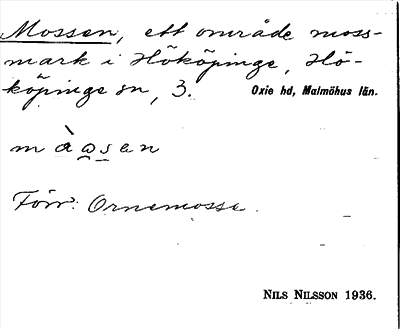 Mossen, ett område moss-
mark i Hököpinge, Hö-
köpinge sn, 3. Oxie hd, Malmöhus län.
Förr: Ornemosse.
NILS NILSSON 1936.